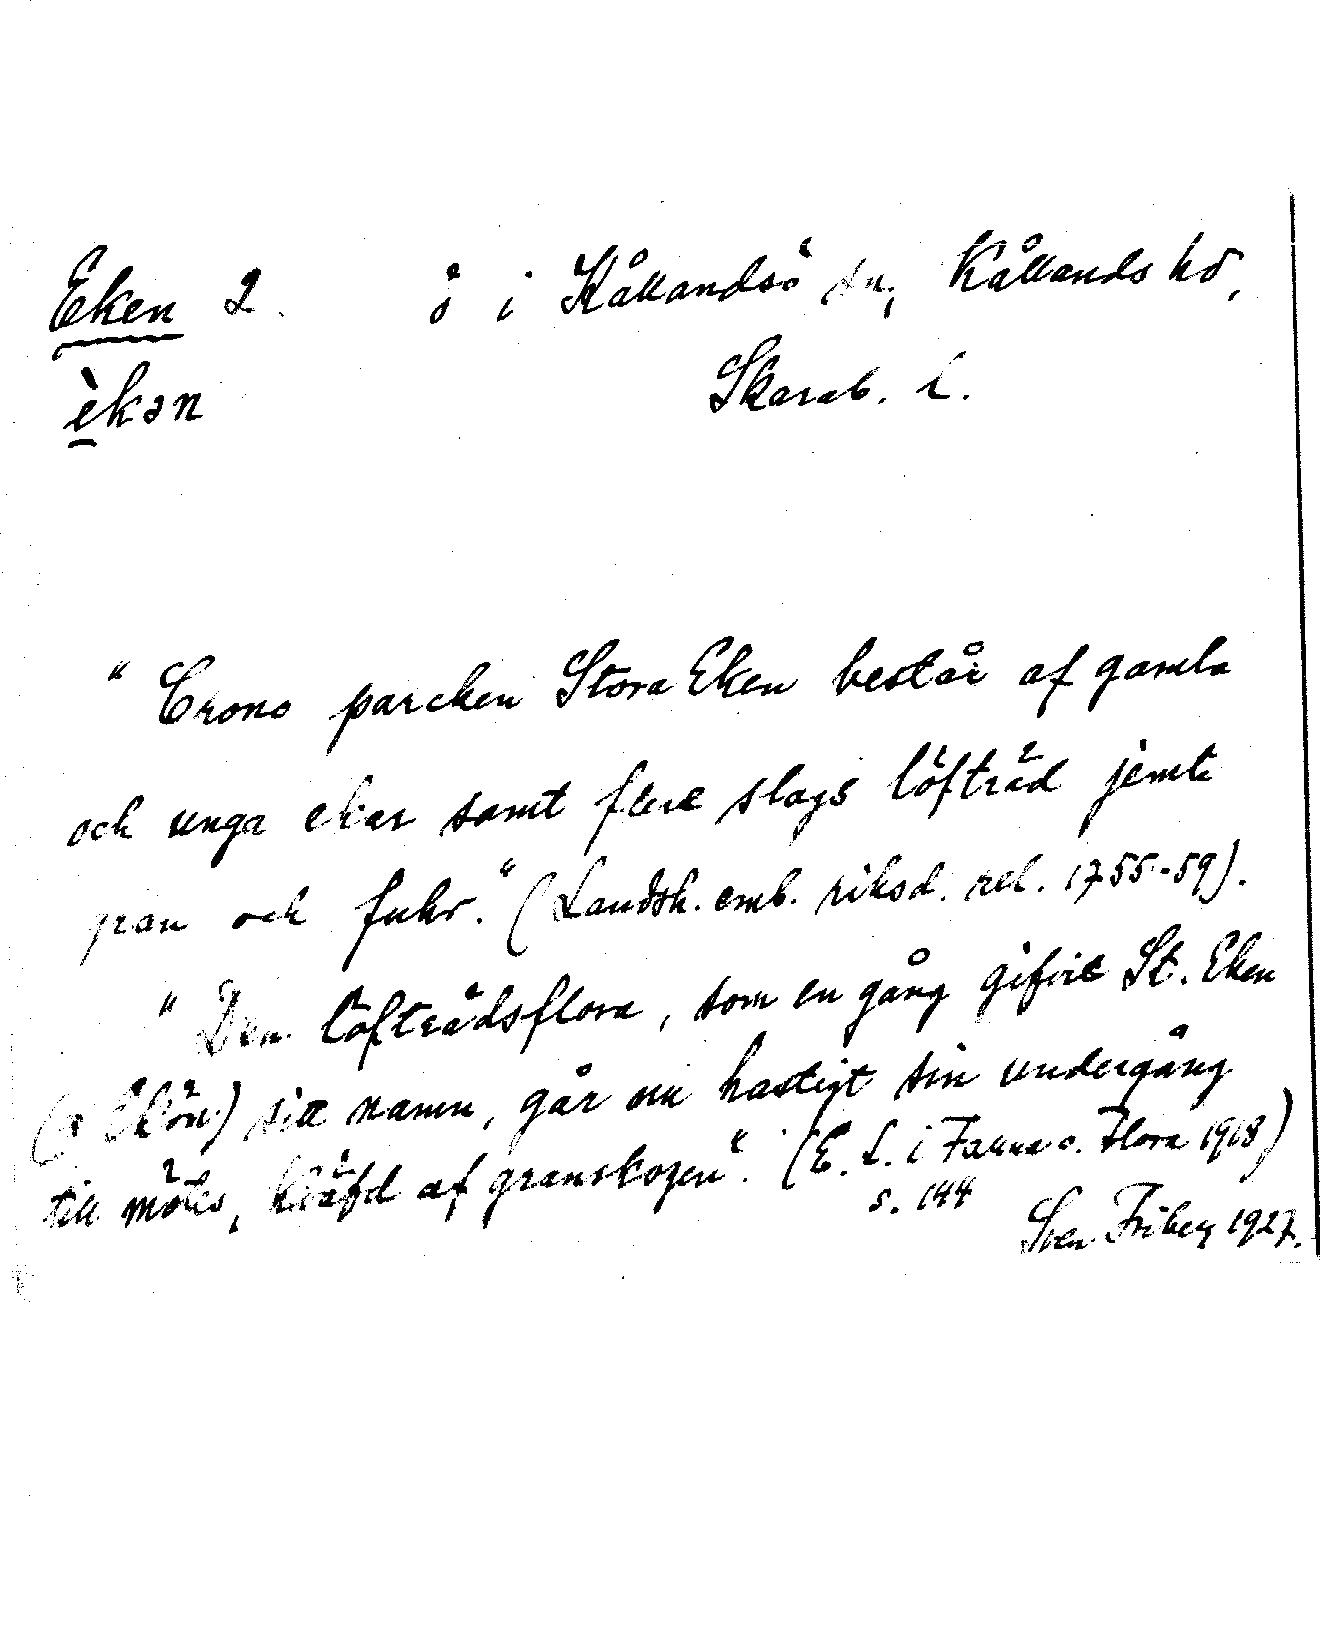 Eken 2. ö i Kållandsö sn, Kållands hd,
èkən Skarab. l.
" Crono parcken Stora Eken består af gamla
och unga ekar samt flere slags löfträd jemte
gran och fuhr." (Landsh. emb. riksd. rel. 1755-59).
" Den löfträdsflora, som en gång gifvit St. Eken
(= Ekön) sitt namn, går nu hastigt sin undergång
till mötes, kväfd af granskogen". (E. L. i Fauna o. Flora 1918)
s. 144
Sven Friberg 1927.